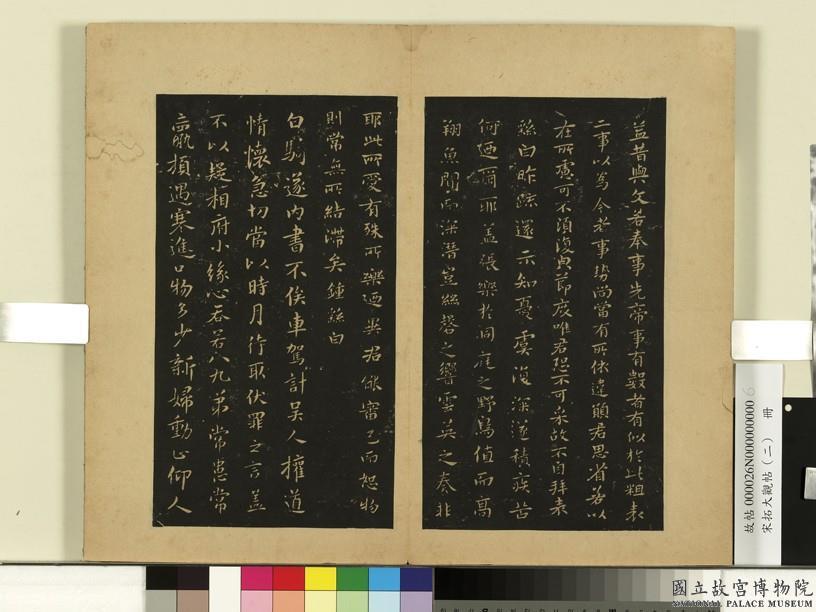 蓋昔與文若奉事先帝事有數者有似於此粗表
二事以為今者事勢尚當有所依違願君思省若以
在所慮可不須復與節度唯君恐不可采故不自拜表
繇白昨疏還示知憂虞復深遂積疾苦
何迺爾耶蓋張樂於洞庭之野鳥值而高
翔魚聞而深潛豈絲磬之響雲英之奏非
耶此所愛有殊所樂迺異君能審己而恕物
則常無所結滯矣鍾繇白
白騎遂內書不俟車駕計吳人權道
情懷急切當以時月行取伏罪之言蓋
不以疑相府小緣心吞若八九弟常患常
羸頓遇寒進口物多少新婦動止仰人
故帖000026N000000000 6
宋拓大觀帖(二) 冊
國立故宮博物院
NATIONAL PALACE MUSEUM